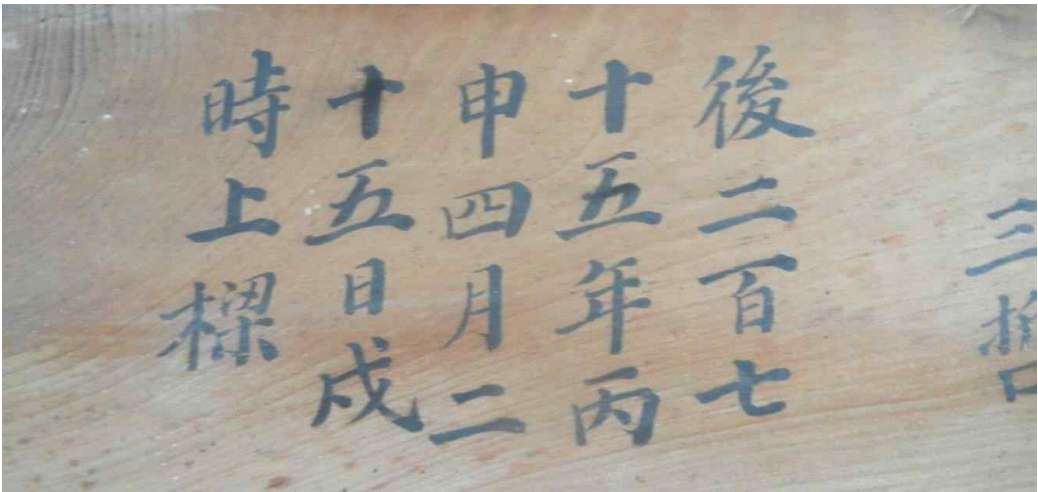 三
後二百七
十五年丙
申四月二
十五日戌
時上樑